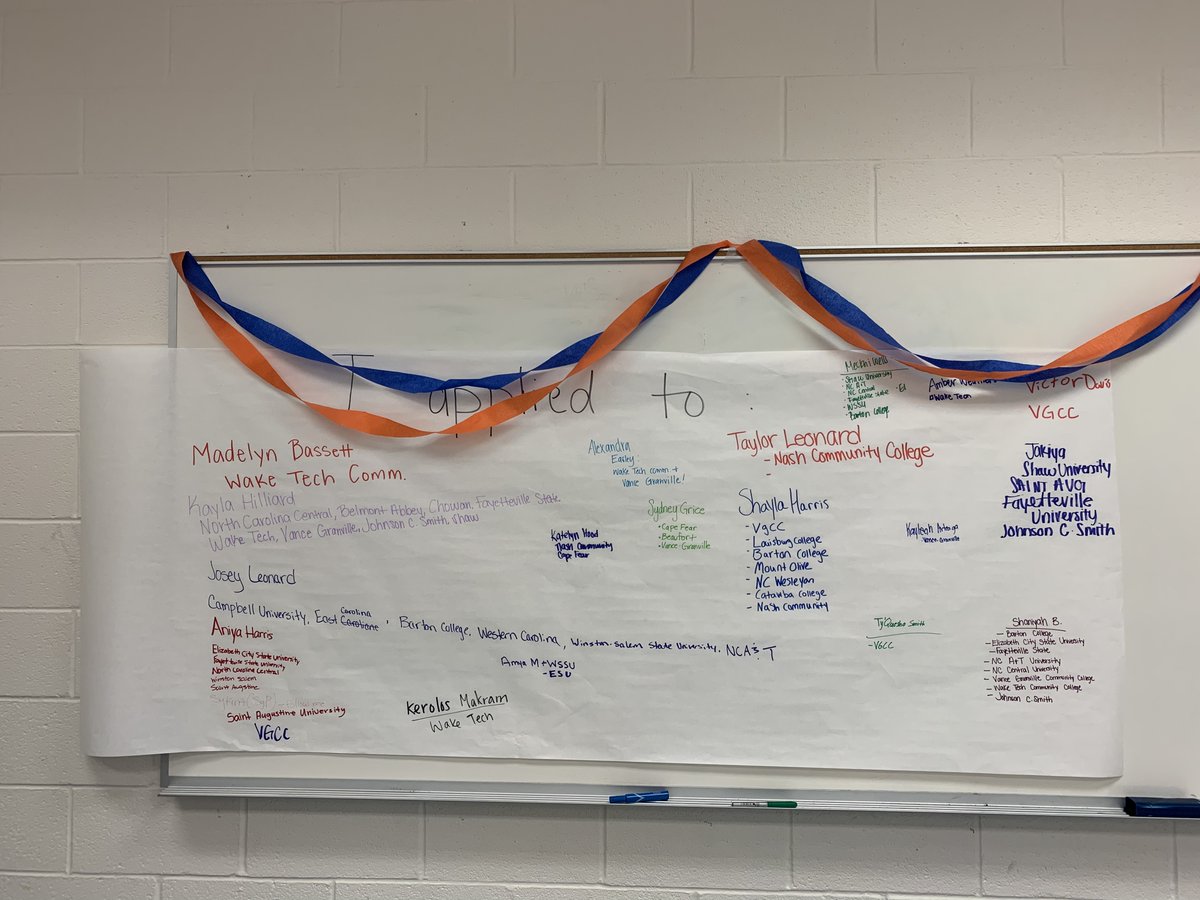 I applied to:
Madelyn Bassett
Wake Tech Comm.
Kayla Hilliard
North Carolina Central, Belmont Abbey, Chowan, Fayetteville State
Wake Tech, Vance Granville, Johnson C. Smith, Shaw
Josey Leonard
Campbell University, East Carolina, Barton College, Western Carolina, Winston-Salem State University, NCA&T
Aniya Harris
Elizabeth City State University
Fayetteville State University
North Carolina Central
Winston Salem
Saint Augustine
Saint Augustine University
VGCC
Amya M
- WSSU
- ESU
Kerolos Makram
Wake Tech
Alexandra
Earley:
Wake Tech comm +
Vance Granville!
Katelyn Hood
Nash Community
Cape Fear
Sydney Grice
• Cape Fear
• Beaufort
• Vance Granville
Taylor Leonard
- Nash Community College
-
Shayla Harris
- VGCC
- Louisburg College
- Barton College
- Mount Olive
- NC Wesleyan
- Catawba College
- Nash Community
- Shaw University
- NC A&T
- NC Central
- Fayetteville State
- WSSU
- Barton College
Amber
Wake Tech
Victor Davis
VGCC
Kayleigh
Vance Granville
Jakiya
Shaw University
SAINT AUG
Fayetteville
University
Johnson C. Smith
Smith
- VGCC
Shaniyah B.
- Barton College
- Elizabeth City State University
- Fayetteville State
- NC A&T University
- NC Central University
- Vance Granville Community College
- Wake Tech Community College
- Johnson C. Smith